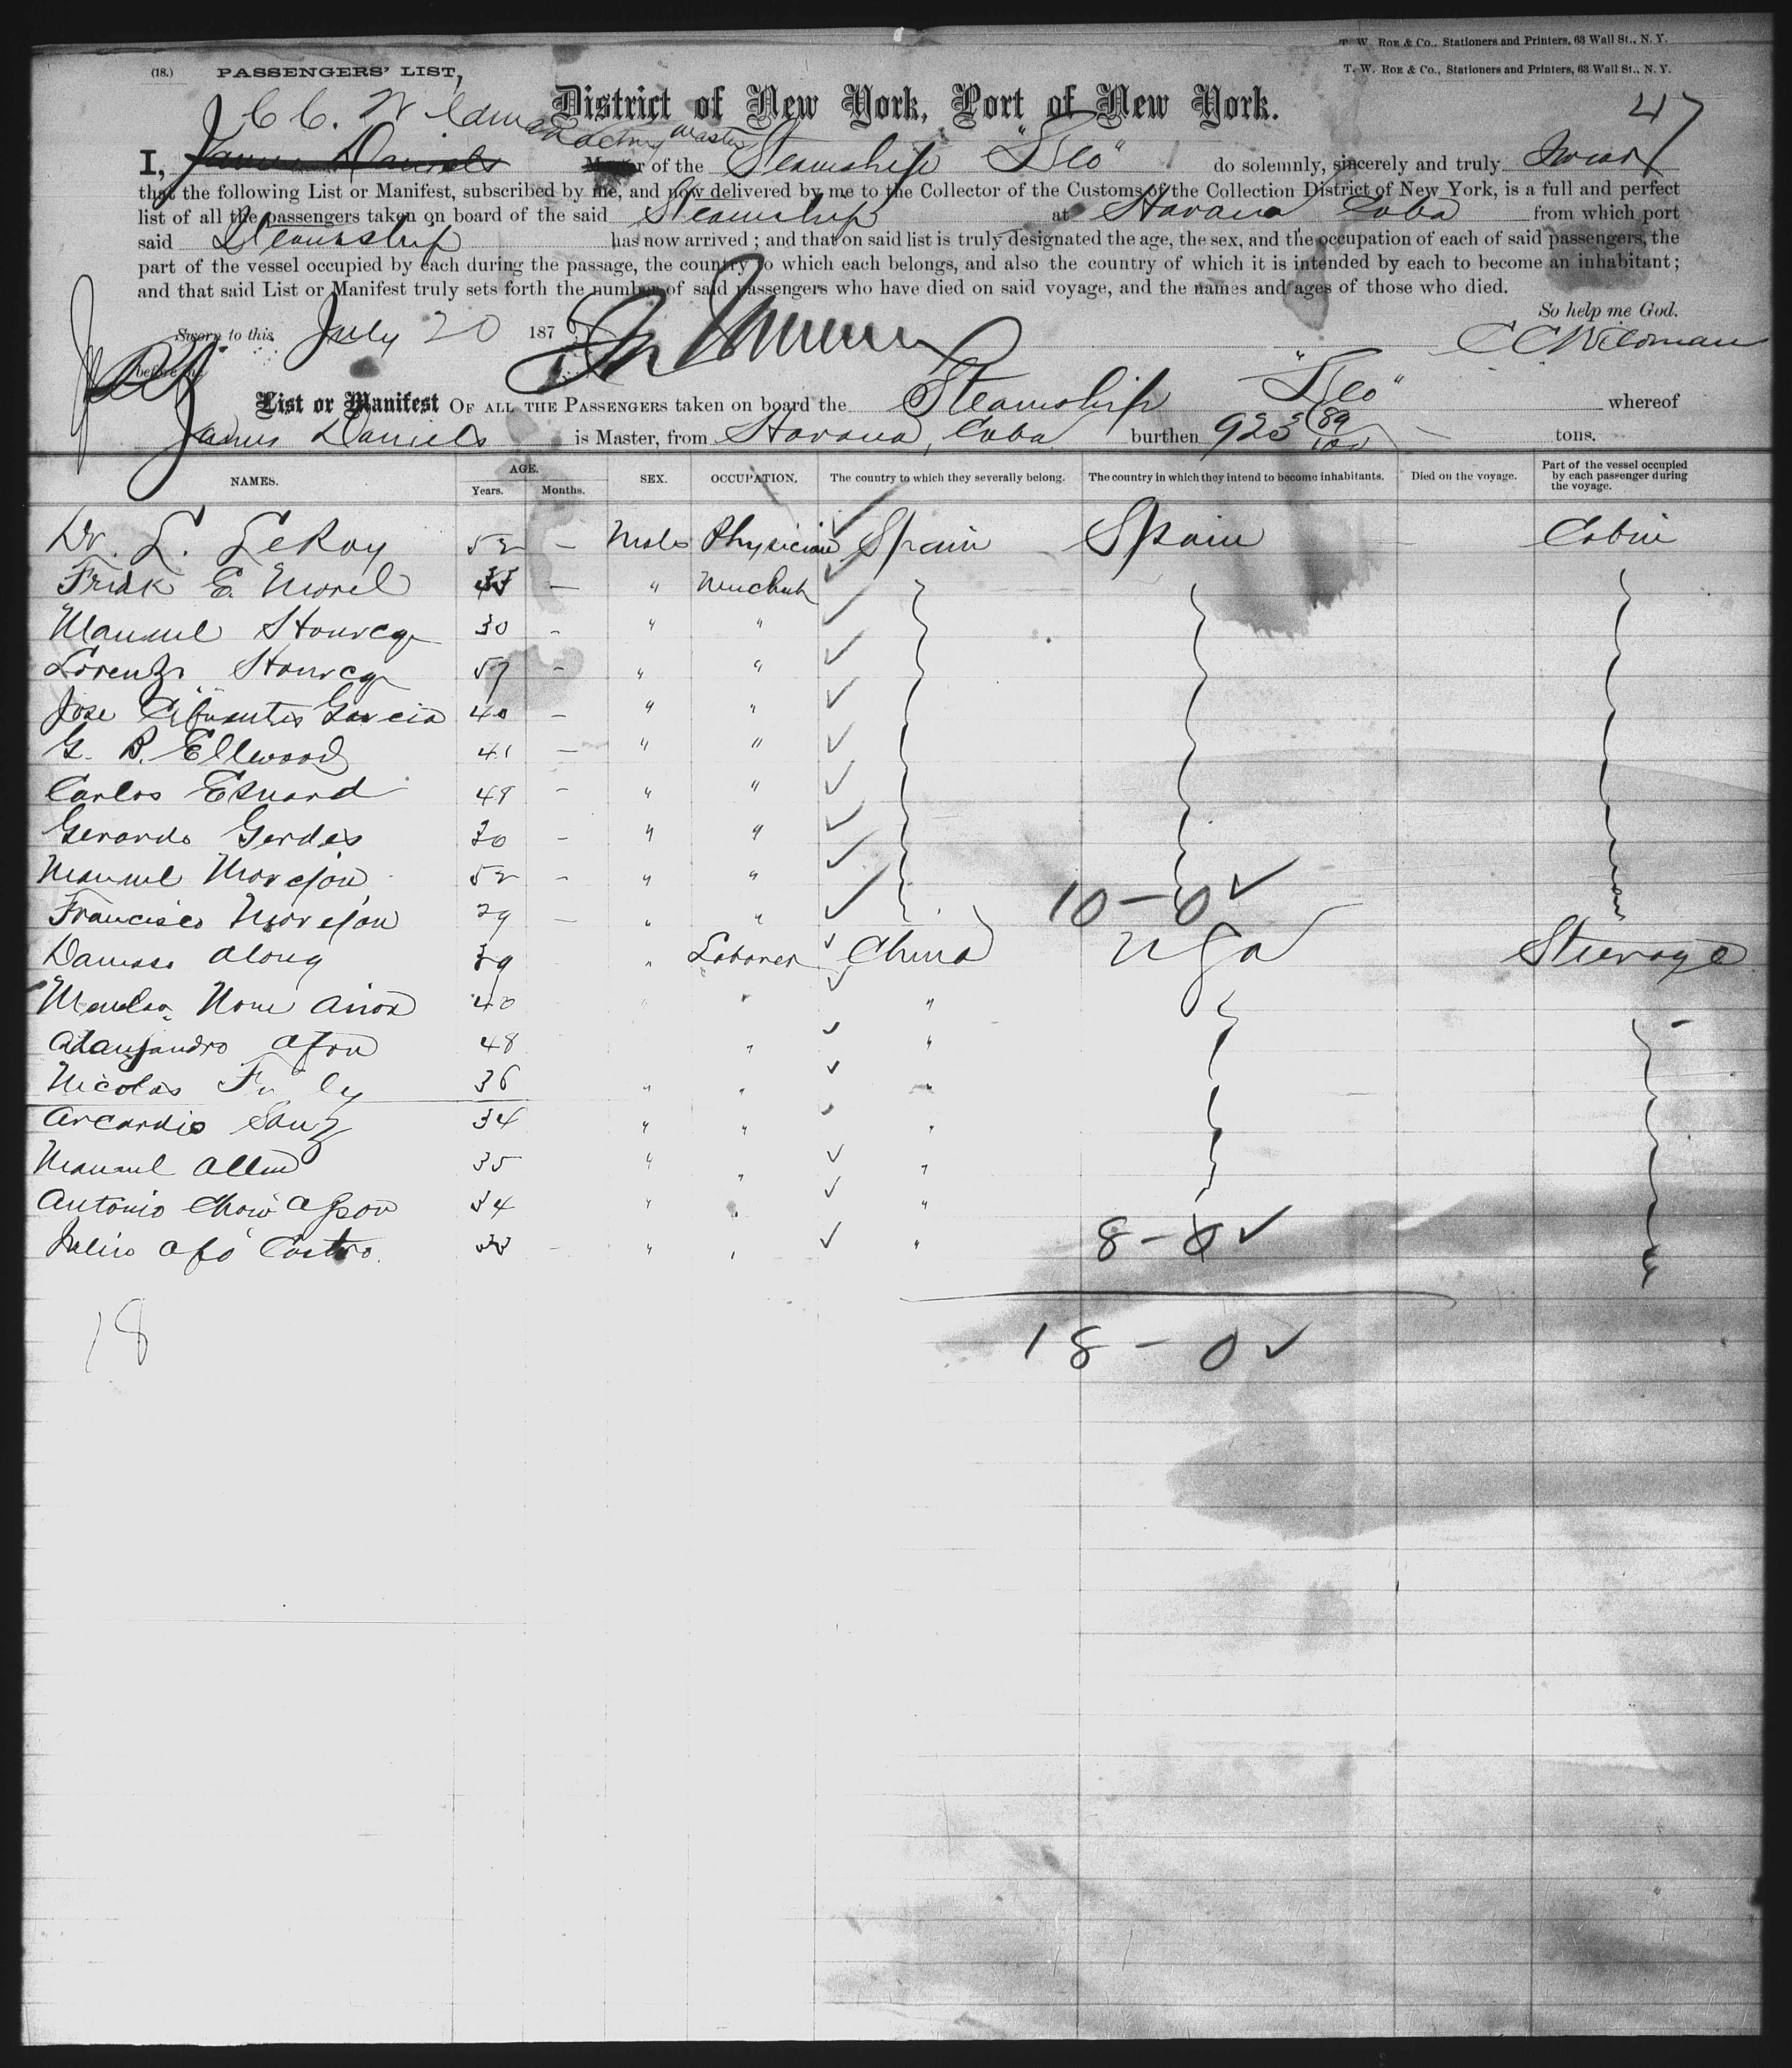 T. W. Roe & Co., Stationers and Printers, 63 Wall St., N. Y.
(18.) PASSENGERS' LIST, T. W. Roe & Co., Stationers and Printers, 63 Wall St., N. Y.
District of New York, Port of New York. 47
C. C. Wildman acting master
I, James Daniels Master of the Steamship "Leo" do solemnly, sincerely and truly swear
that the following List or Manifest, subscribed by me, and now delivered by me to the Collector of the Customs of the Collection District of New York, is a full and perfect
list of all the passengers taken on board of the said Steamship at Havana Cuba from which port
said Steamship has now arrived ; and that on said list is truly designated the age, the sex, and the occupation of each of said passengers, the
part of the vessel occupied by each during the passage, the country to which each belongs, and also the country of which it is intended by each to become an inhabitant ;
and that said List or Manifest truly sets forth the number of said passengers who have died on said voyage, and the names and ages of those who died.
So help me God.
Sworn to this July 20 187 C C Wildman
before me
List or Manifest OF ALL THE PASSENGERS taken on board the Steamship "Leo" whereof
James Daniels is Master, from Havana, Cuba burthen 923 89/100 tons.
NAMES. AGE. Years. Months. SEX. OCCUPATION. The country to which they severally belong. The country in which they intend to become inhabitants. Died on the voyage. Part of the vessel occupied by each passenger during the voyage.
Dr. L. LeRoy 52 – Male Physician Spain Spain Cabin
E. Morel – " "
Manuel 30 – " "
Lorenzo 57 – " "
Jose Cifuentes Garcia 40 – " "
G. B. Ellwood 41 – " "
Carlos 49 – " "
Gerardo Gerdes 30 – " "
Manuel Morejon 52 – " "
Francisco Morejon 29 – " " 10 – 0 ✓
Damaso Along 39 " Laborer China USA Steerage
40 " " "
Afon 48 " "
Nicolas 36 " " "
Arcardio Sanz 34 " " "
Manuel Allen 35 " " "
Antonio Chow 34 " " "
Julio Afo Castro. 33 – " " " 8 – 0 ✓
18 18 – 0 ✓